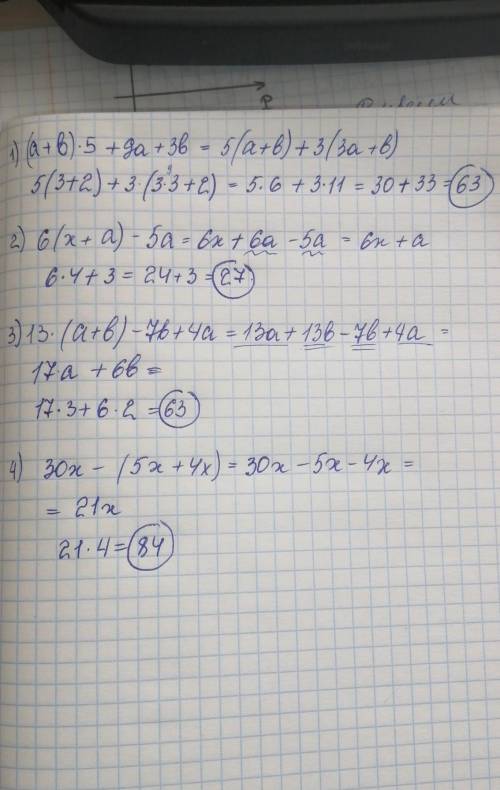 р
1) (a+b)·5 + 9a + 3b = 5(a+b) + 3(3a+b)
5(3+2) + 3·(3·3+2) = 5·6 + 3·11 = 30 + 33 = 63
2) 6(x+a) - 5a = 6x + 6a - 5a = 6x + a
6·4 + 3 = 24 + 3 = 27
3) 13·(a+b) - 7b + 4a = 13a + 13b - 7b + 4a =
17·a + 6b =
17·3 + 6·2 = 63
4) 30x - (5x + 4x) = 30x - 5x - 4x =
= 21x
21·4 = 84